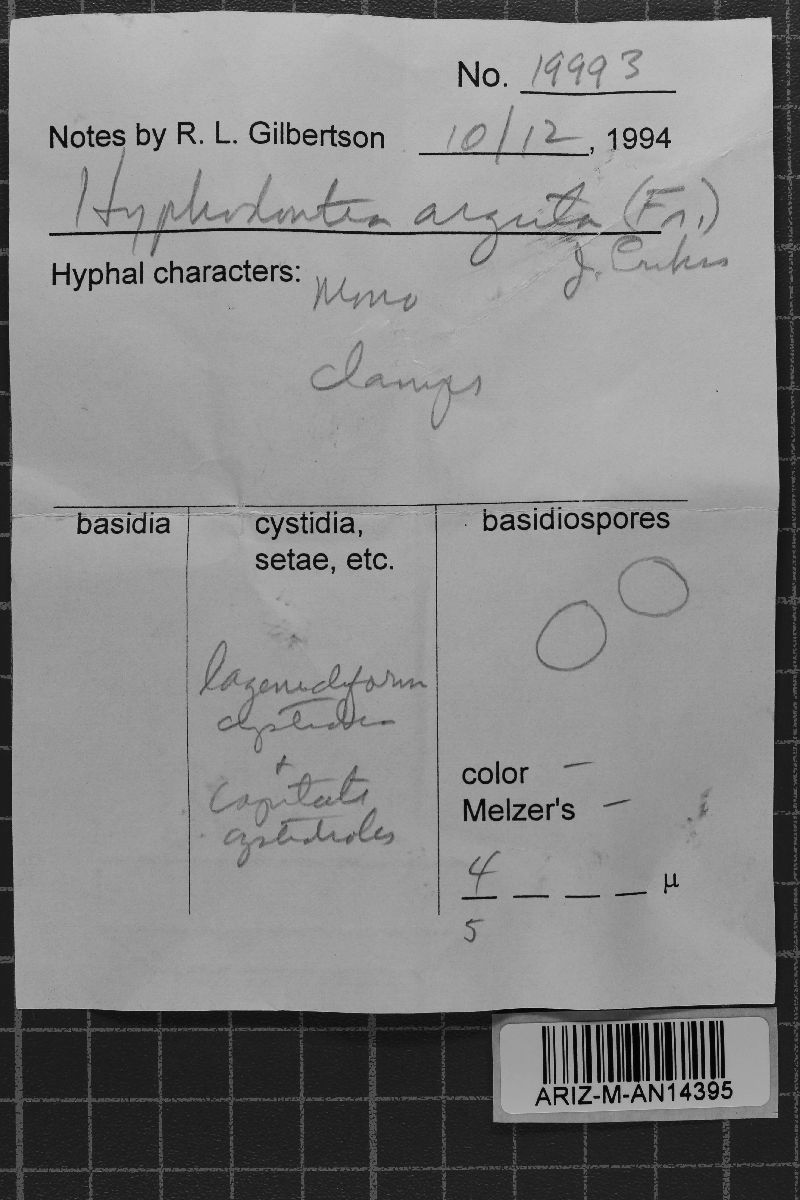 No. 19993
Notes by R. L. Gilbertson 10/12, 1994
Hyphodontia arguta (Fr.)
J. Erikss
Hyphal characters:
Mono
clamps
basidia
cystidia,
setae, etc.
lageniform
cystidia
+
capitate
cystidioles
basidiospores
color –
Melzer's –
4 _ _ _ μ
5
ARIZ-M-AN14395